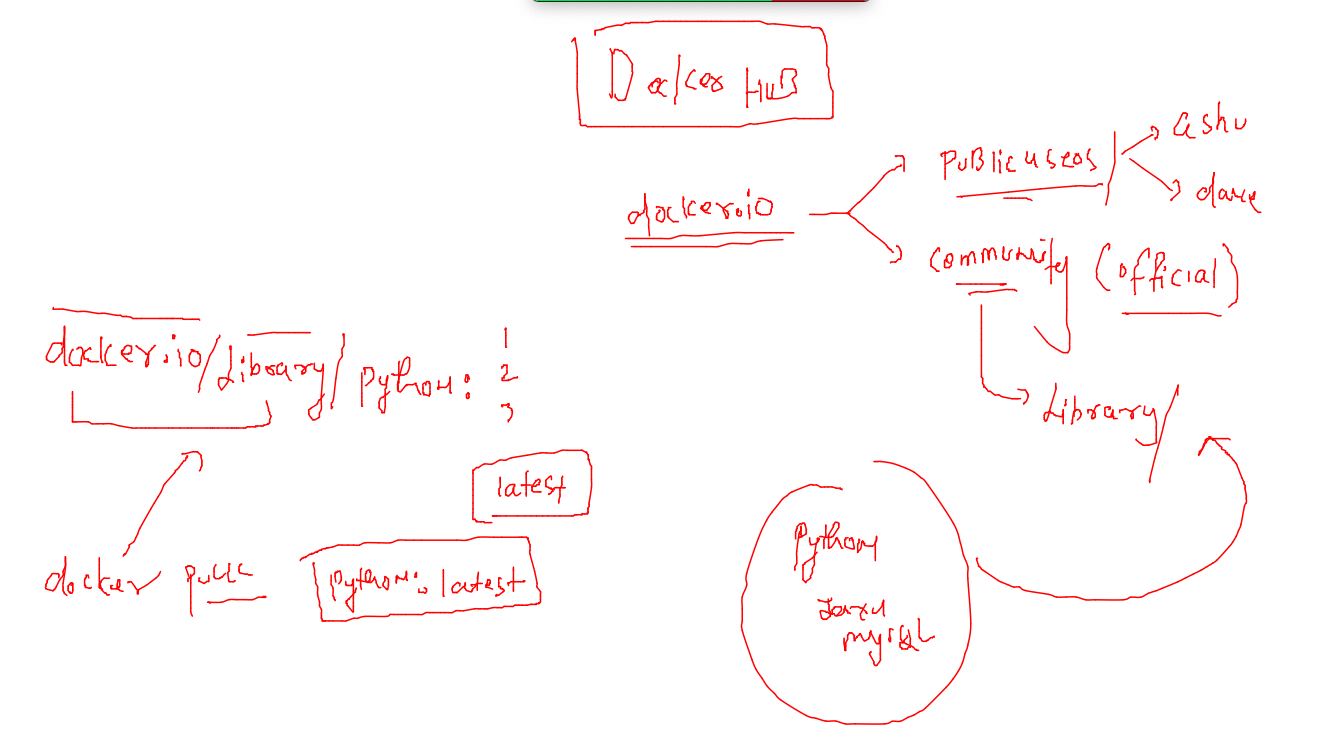 Docker HUB
docker.io
Public users /
ashu
dave
community (official)
Library/
docker.io/Library/python:
1
2
3
latest
docker pull python:latest
python
mysql